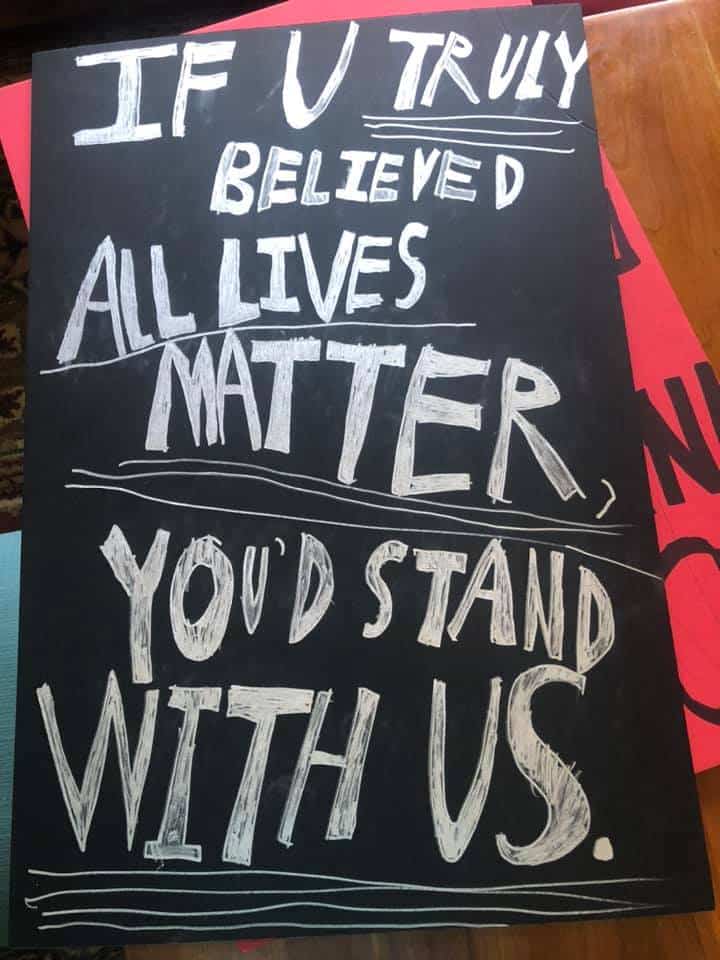 IF U TRULY
BELIEVED
ALL LIVES
MATTER,
YOU'D STAND
WITH US.